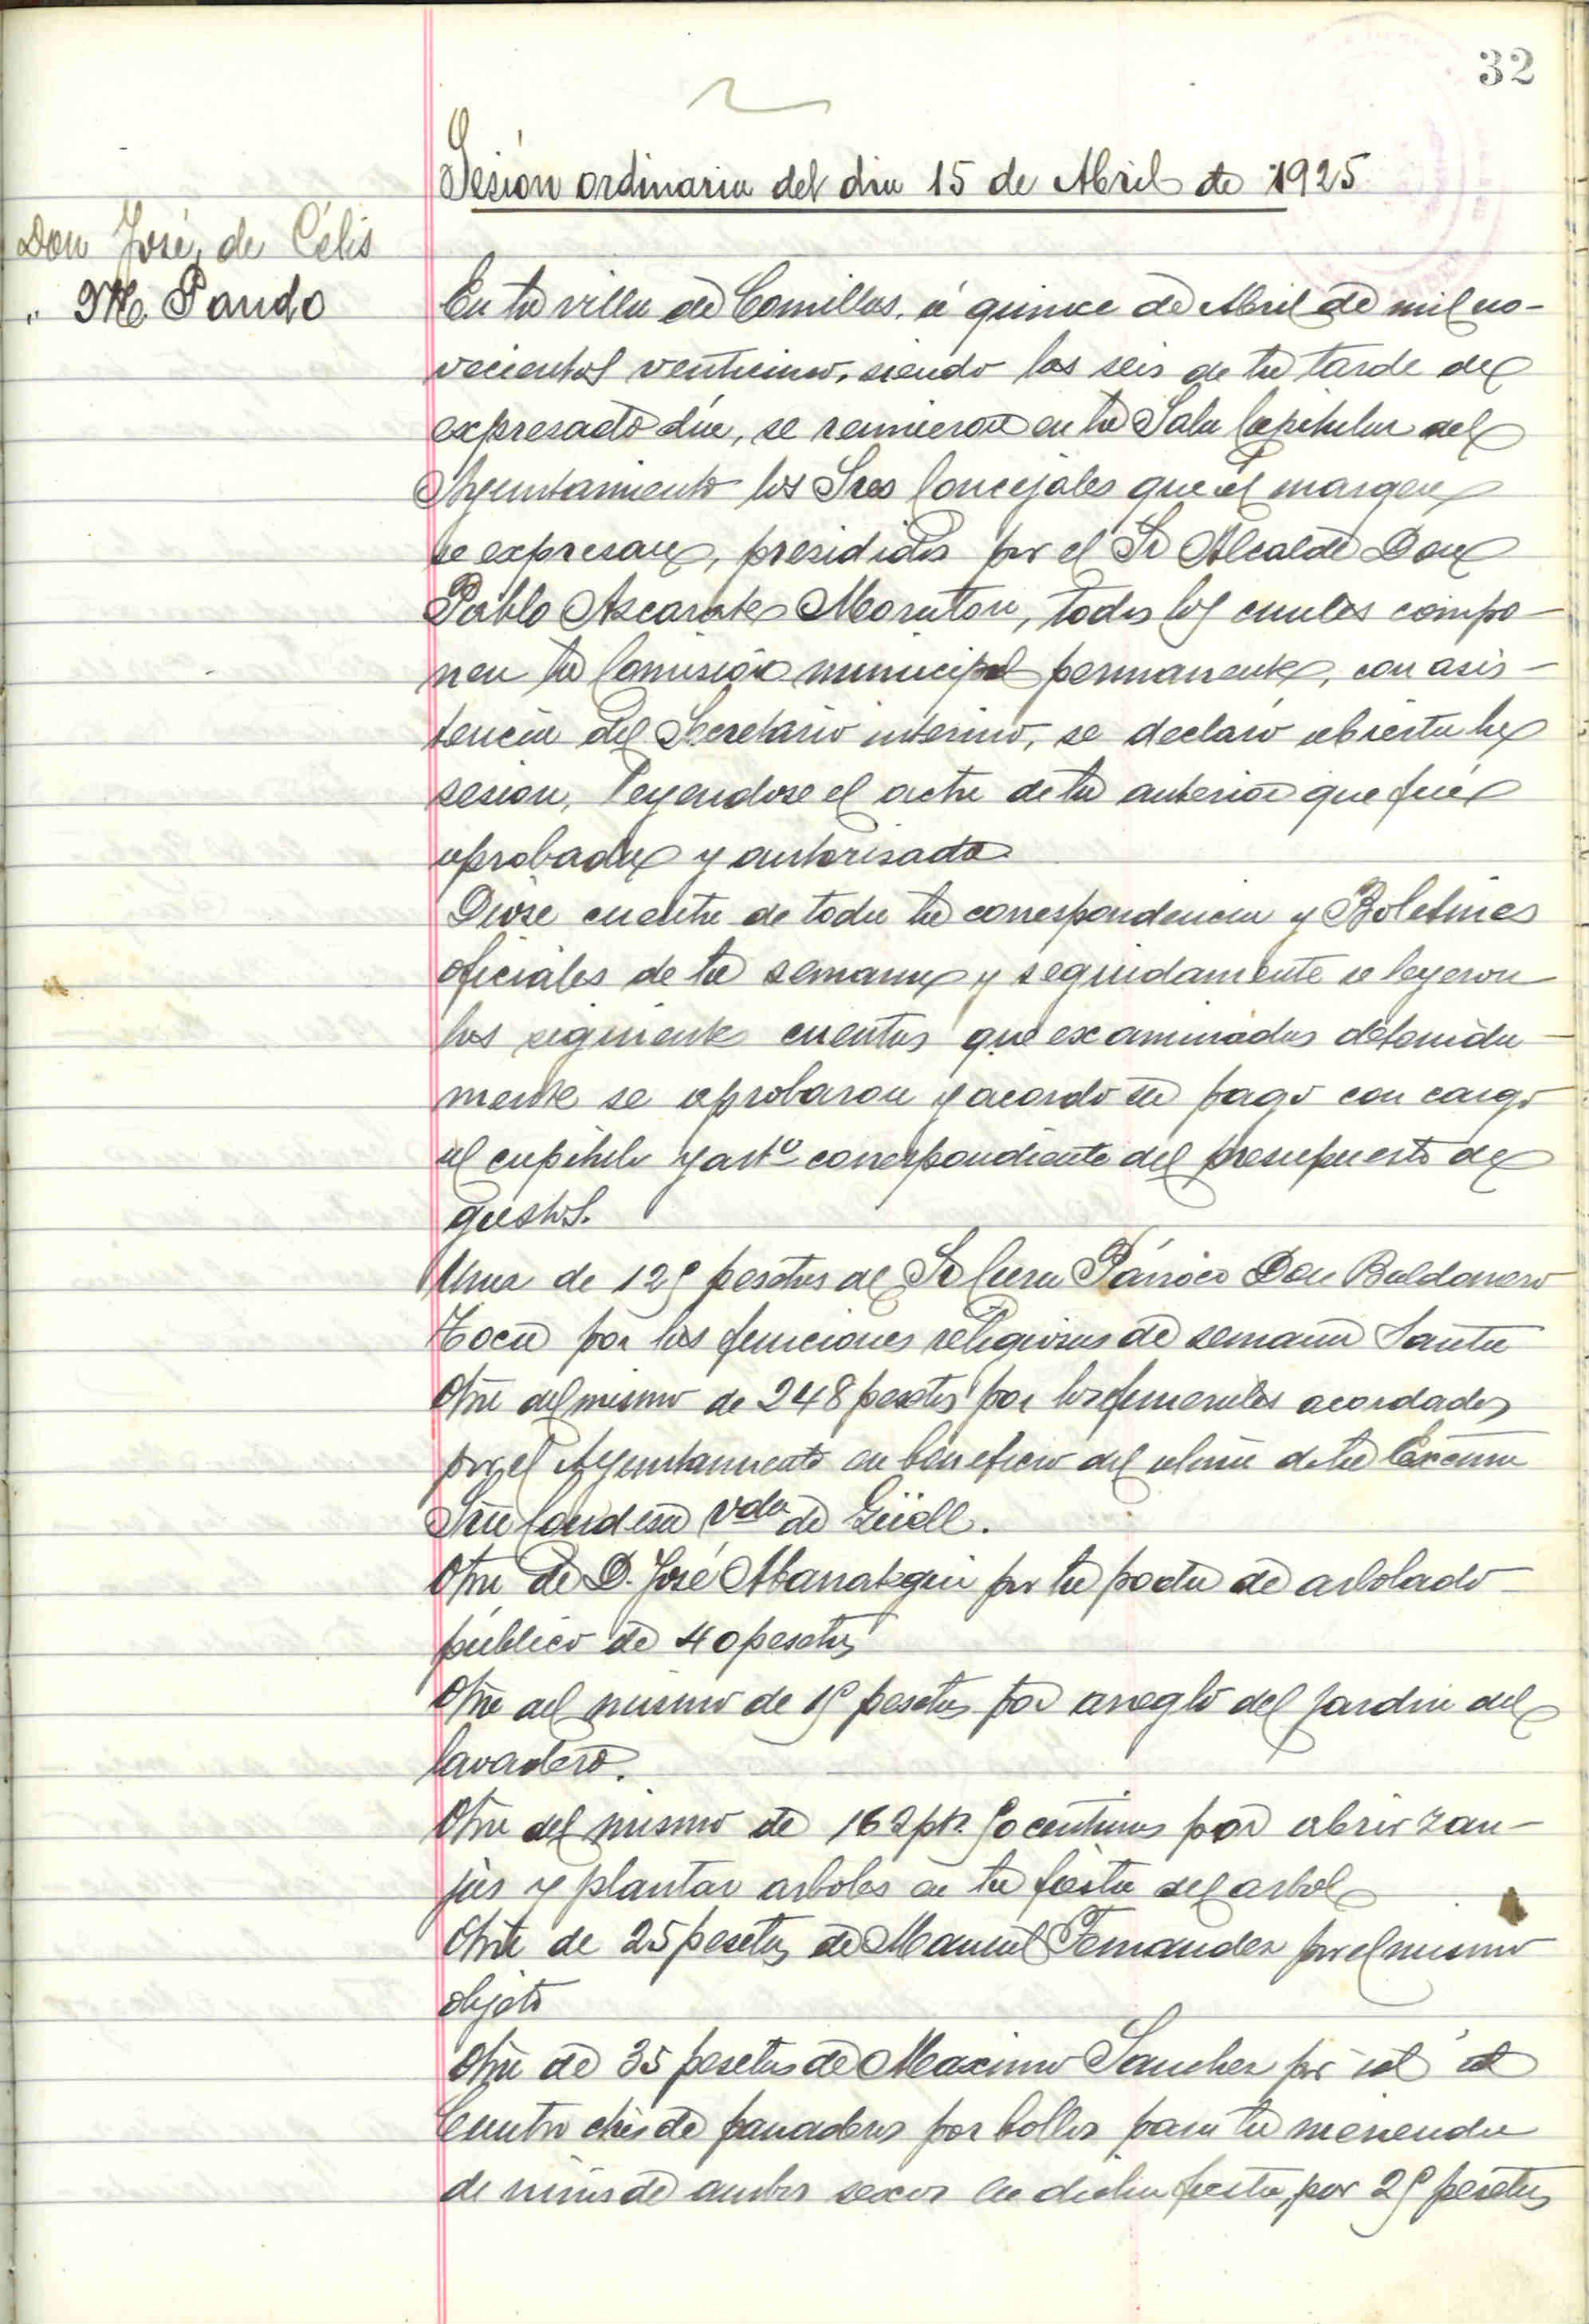 32
Sesión ordinaria del dia 15 de Abril de 1925
Don José de Célis
" M. Pando
En la villa de Comillas, á quince de Abril de mil no-
vecientos venticinco, siendo las seis de la tarde del
expresado día, se reunieron en la Sala Capitular del
Ayuntamiento los Sres Concejales que al margen
se expresan, presididos por el Sr Alcalde Don
Pablo Azcarate Moraton, todos los cuales compo-
nen la Comisión municipal permanente, con asis-
tencia del Secretario interino, se declaró abierta la
sesion, leyendose el acta de la anterior que fué
aprobada y autorisada
Dióse cuenta de toda la correspondencia y Boletines
oficiales de la semana y seguidamente se leyeron
las siguiente cuentas que examinadas detenida-
mente se aprobaron y acordo su pago con cargo
al capitulo y artº correspondiente del presupuesto de
gastos.
Una de 125 pesetas al Sr Cura Párroco Don Baldomero
Toca por las funciones religiosas de semana Santa
Otra del mismo de 248 pesetas por los funerales acordados
por el Ayuntamiento en beneficio del alma de la Excma
Sra Condesa Vda de Güell.
Otra de D. José por la poda de arbolado
público de 40 pesetas
Otra del mismo de 15 pesetas por arreglo del jardin del
lavadero.
Otra del mismo de 162 pts. 50 centimos por abrir zan-
jas y plantar arboles en la fiesta del arbol
Otra de 25 pesetas de Manuel Fernandez por el mismo
objeto
Otra de 35 pesetas de Maximo Sanchez por id id
Cuatro de panaderos por bollos para la merienda
de niños de ambos sexos en dicha fiesta, por 25 pesetas